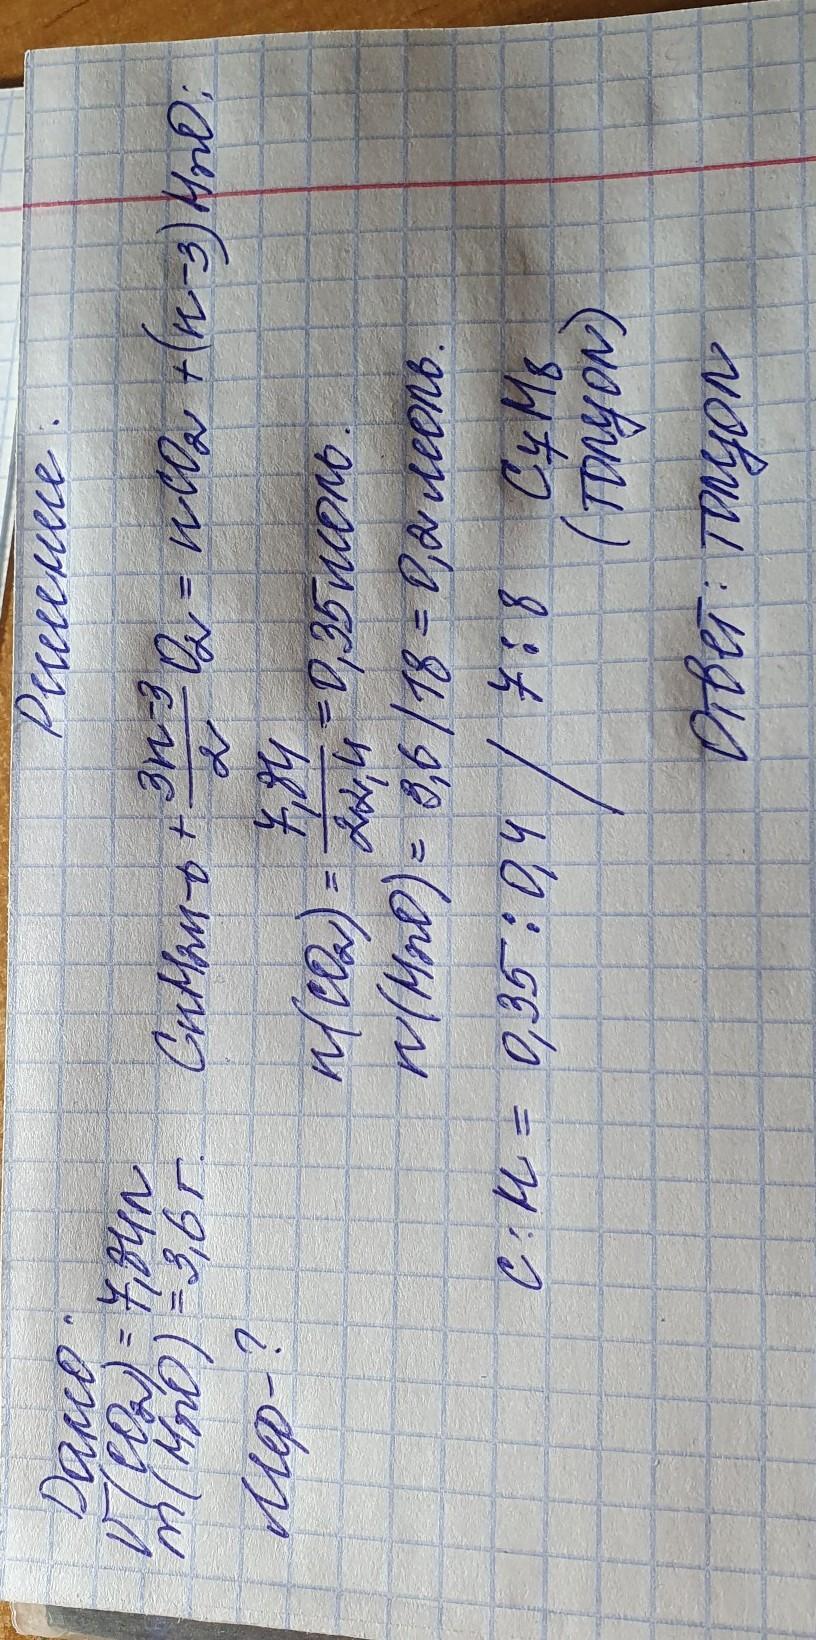 Решение:
Дано:
V(CO₂) = 7,84л
m(H₂O) = 3,6 г.
МФ-?
CnH2n-6 + 3n-3/2 O₂ = nCO₂ + (n-3)H₂O;
n(CO₂) = 7,84/22,4 = 0,35моль.
n(H₂O) = 3,6/18 = 0,2 моль.
C:H = 0,35:0,4 / 7:8 C₇H₈
(толуол)
Ответ: толуол